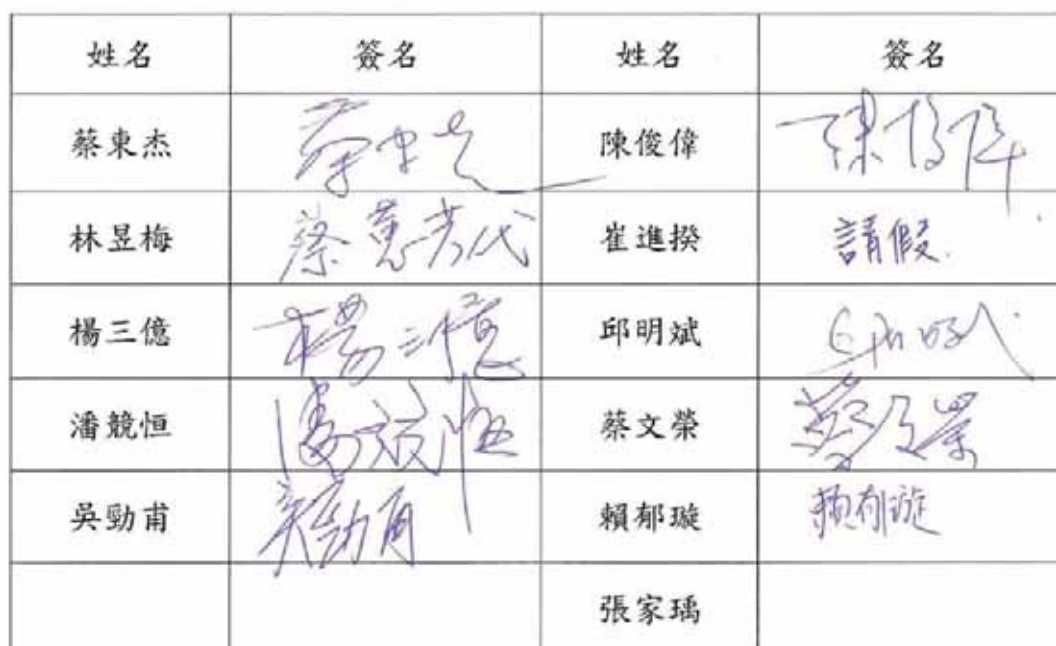 姓名 簽名 姓名 簽名
蔡東杰 蔡東杰 陳俊偉 陳俊偉
林昱梅 蔡蕙芳代 崔進揆 請假.
楊三億 楊三億 邱明斌 邱明斌
潘競恒 潘競恒 蔡文榮 蔡文榮
吳勁甫 吳勁甫 賴郁璇 賴郁璇
張家瑀